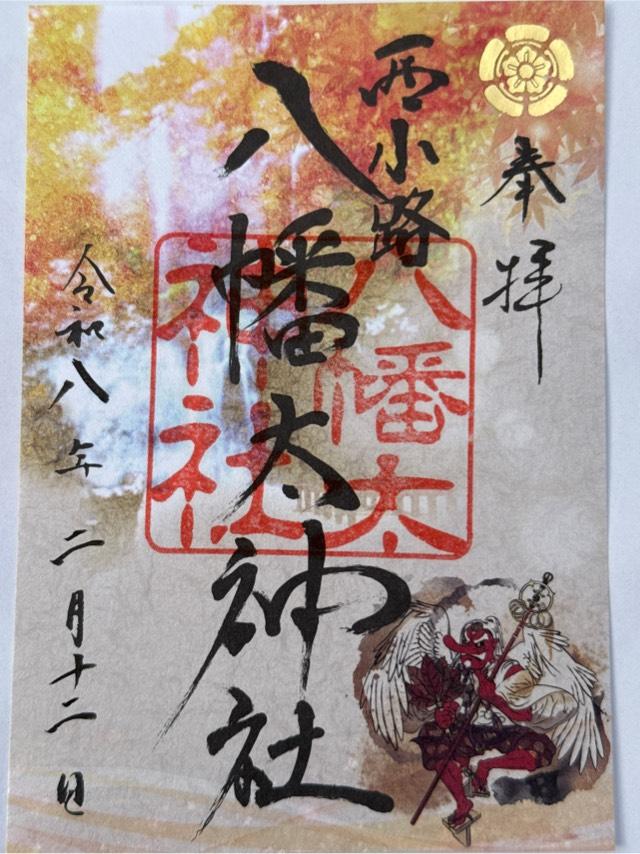 奉拝
西小路
八幡太神社
八幡太
神社
令和八年二月十二日